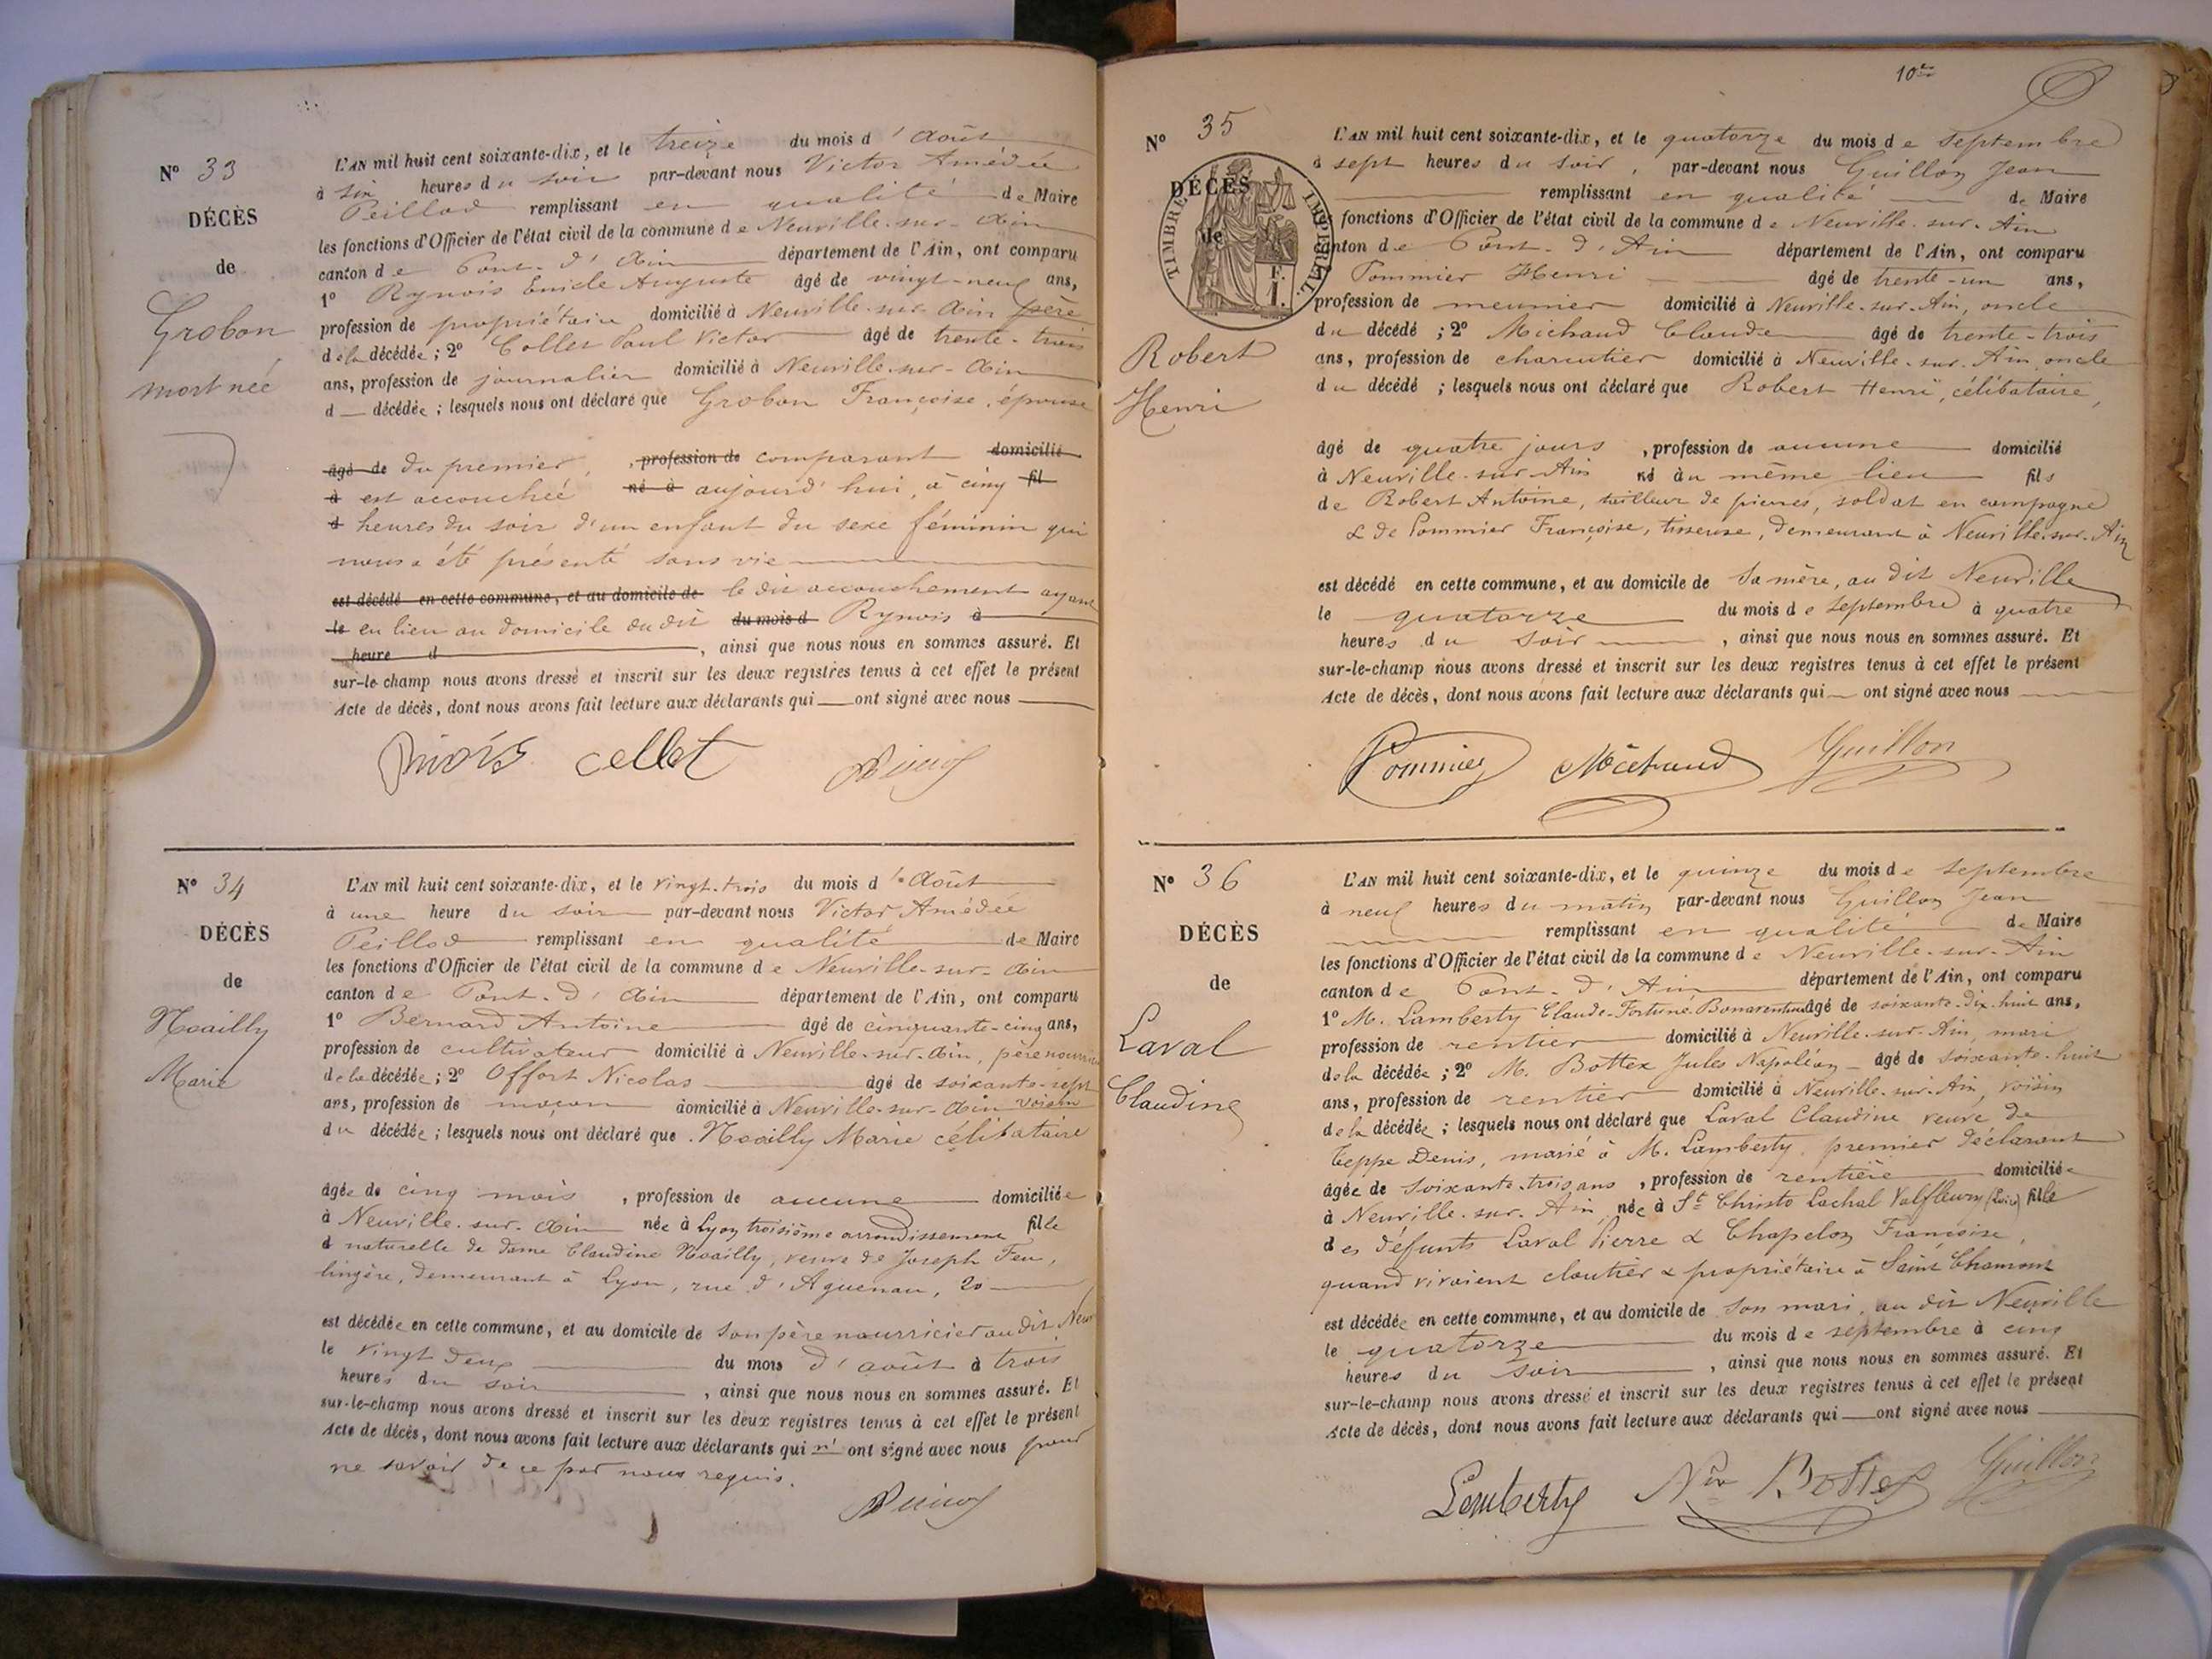 N° 33
DÉCÈS
de
Grobon
mort née
L'AN mil huit cent soixante-dix, et le treize du mois d'Août
à six heures du soir par-devant nous Victor Amédée
Peillod remplissant en qualité de Maire
les fonctions d'Officier de l'état civil de la commune de Neuville-sur-Ain
canton de Pont-d'Ain département de l'Ain, ont comparu
1° Rynois Emile Auguste âgé de vingt-neuf ans,
profession de propriétaire domicilié à Neuville-sur-Ain père
de la décédée ; 2° Collet Paul Victor âgé de trente-trois
ans, profession de journalier domicilié à Neuville-sur-Ain
d décédée ; lesquels nous ont déclaré que Grobon Françoise, épouse
âgé de du premier, profession de comparant domicilié
à est accouchée né à aujourd'hui, à cinq fil
d heures du soir d'un enfant du sexe féminin qui
nous a été présenté sans vie
est décédé en cette commune, et au domicile de le dit accouchement ayant
le eu lieu au domicile du dit du mois d Rynois à
heure d , ainsi que nous nous en sommes assuré. Et
sur-le-champ nous avons dressé et inscrit sur les deux registres tenus à cet effet le présent
Acte de décès, dont nous avons fait lecture aux déclarants qui ont signé avec nous
collet
N° 34
DÉCÈS
de
Noailly
Marie
L'AN mil huit cent soixante-dix, et le vingt-trois du mois d'Août
à une heure du soir par-devant nous Victor Amédée
Peillod remplissant en qualité de Maire
les fonctions d'Officier de l'état civil de la commune de Neuville-sur-Ain
canton de Pont-d'Ain département de l'Ain, ont comparu
1° Bernard Antoine âgé de cinquante-cinq ans,
profession de cultivateur domicilié à Neuville-sur-Ain, père nourricier
de la décédée ; 2° Offort Nicolas âgé de soixante-sept
ans, profession de maçon domicilié à Neuville-sur-Ain voisin
du décédée ; lesquels nous ont déclaré que Noailly Marie célibataire
âgée de cinq mois, profession de aucune domiciliée
à Neuville-sur-Ain née à Lyon troisième arrondissement fille
d naturelle de dame Claudine Noailly, veuve de Joseph Feu,
lingère, demeurant à Lyon, rue d'Aguenau, 20
est décédée en cette commune, et au domicile de son père nourricier au dit Neu
le vingt deux du mois d'août à trois
heures du soir, ainsi que nous nous en sommes assuré. Et
sur-le-champ nous avons dressé et inscrit sur les deux registres tenus à cet effet le présent
Acte de décès, dont nous avons fait lecture aux déclarants qui n'ont signé avec nous pour
ne savoir de ce par nous requis.
10e
N° 35
DÉCÈS
de
TIMBRE IMPÉRIAL
Robert
Henri
L'AN mil huit cent soixante-dix, et le quatorze du mois de septembre
à sept heures du soir, par-devant nous Guillon Jean
remplissant en qualité de Maire
les fonctions d'Officier de l'état civil de la commune de Neuville-sur-Ain
canton de Pont-d'Ain département de l'Ain, ont comparu
Pommier Henri âgé de trente-un ans,
profession de meunier domicilié à Neuville-sur-Ain, oncle
du décédé ; 2° Michaud Claude âgé de trente-trois
ans, profession de charcutier domicilié à Neuville-sur-Ain oncle
du décédé ; lesquels nous ont déclaré que Robert Henri, célibataire,
âgé de quatre jours, profession de aucune domicilié
à Neuville-sur-Ain né au même lieu fils
de Robert Antoine, tailleur de pierres, soldat en campagne
& de Pommier Françoise, tisseuse, demeurant à Neuville-sur-Ain
est décédé en cette commune, et au domicile de sa mère, au dit Neuville
le quatorze du mois de septembre à quatre
heures du soir, ainsi que nous nous en sommes assuré. Et
sur-le-champ nous avons dressé et inscrit sur les deux registres tenus à cet effet le présent
Acte de décès, dont nous avons fait lecture aux déclarants qui ont signé avec nous
Pommier Michaud Guillon
N° 36
DÉCÈS
de
Laval
Claudine
L'AN mil huit cent soixante-dix, et le quinze du mois de septembre
à neuf heures du matin par-devant nous Guillon Jean
remplissant en qualité de Maire
les fonctions d'Officier de l'état civil de la commune de Neuville-sur-Ain
canton de Pont-d'Ain département de l'Ain, ont comparu
1° M. Lamberty Claude-Fortuné-Bonaventure âgé de soixante-dix-huit ans,
profession de rentier domicilié à Neuville-sur-Ain, mari
de la décédée ; 2° M. Bottex Jules Napoléon âgé de soixante-huit
ans, profession de rentier domicilié à Neuville-sur-Ain, voisin
de la décédée ; lesquels nous ont déclaré que Laval Claudine veuve de
Teppe Denis, marié à M. Lamberty, premier déclarant
âgée de soixante-trois ans, profession de rentière domiciliée
à Neuville-sur-Ain, née à St Christo Lachal Valfleury (Loire) fille
des défunts Laval Pierre & Chapelon Françoise,
quand vivaient cloutier & propriétaire à Saint Chamont
est décédée en cette commune, et au domicile de son mari, au dit Neuville
le quatorze du mois de septembre à cinq
heures du soir, ainsi que nous nous en sommes assuré. Et
sur-le-champ nous avons dressé et inscrit sur les deux registres tenus à cet effet le présent
Acte de décès, dont nous avons fait lecture aux déclarants qui ont signé avec nous
Lamberty Bottex Guillon